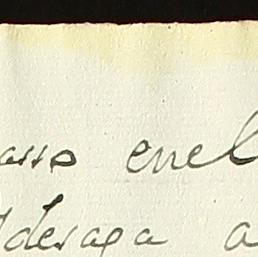 asso enel
desaga a